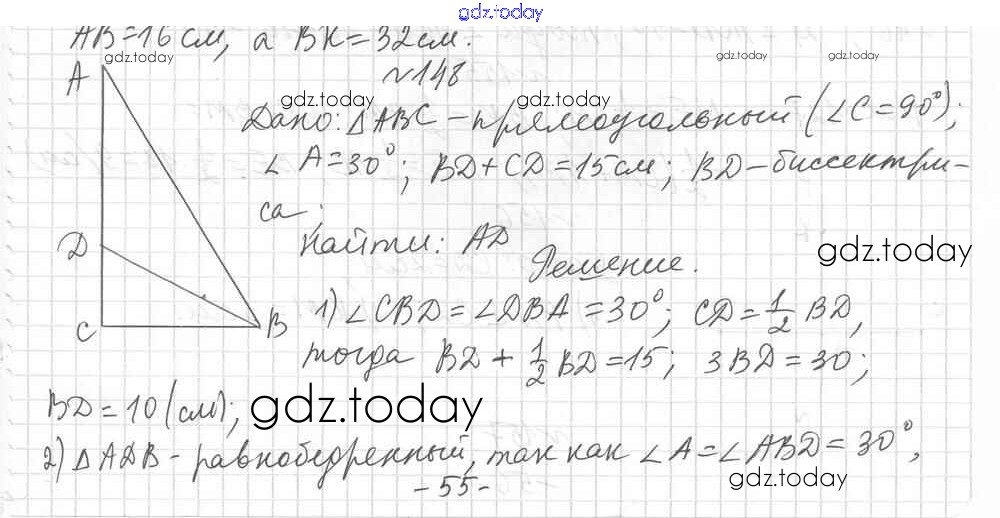 gdz.today
AB=16 см, а BK=32 см.
gdz.today gdz.today gdz.today
A
№148
gdz.today gdz.today
Дано: △ABC - прямоугольный (∠C=90°);
∠A=30°; BD+CD=15 см; BD-биссектри-
са;
Найти: AD
D
gdz.today
Решение.
C
B
1) ∠CBD=∠DBA=30°; CD=1/2 BD,
тогда BD + 1/2 BD=15; 3BD=30;
BD=10 (см);
gdz.today
2) △ADB - равнобедренный, так как ∠A=∠ABD=30°,
gdz.today
-55-